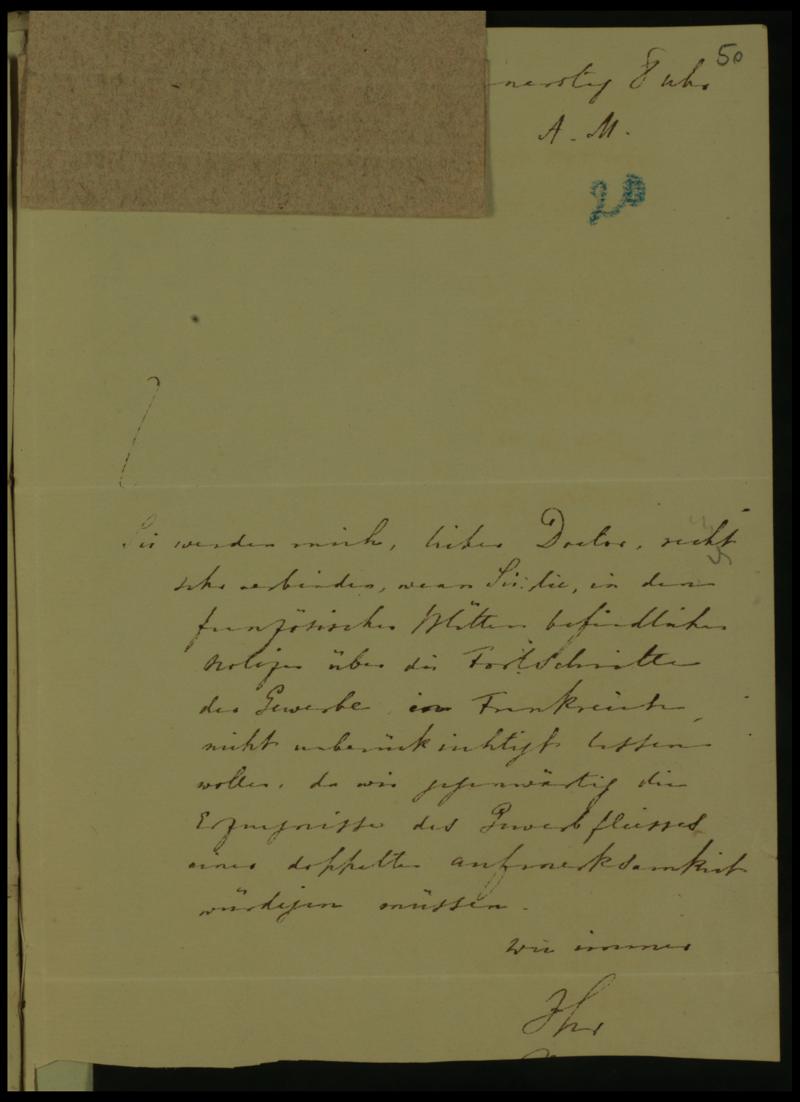 50
nerstag 8 Uhr
A. M.
20
Sie werden mich, lieber Doctor, recht
sehr verbinden, wenn Sie die, in den
französischen Blättern befindlichen
Notizen über die Fortschritte
der Gewerbe in Frankreich,
nicht unberücksichtigt lassen
wollen, da wir gegenwärtig die
Erzeugnisse des Gewerbfleisses
einer doppelten Aufmerksamkeit
würdigen müssen.
Wie immer
Ihr